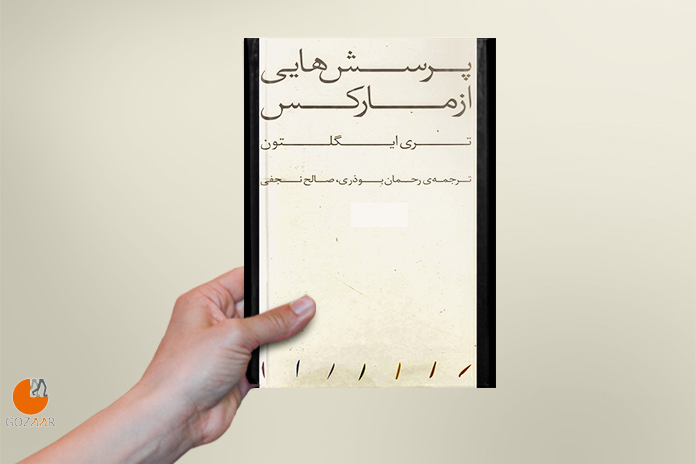 پرسش‌هایی
از مارکس
تری ایگلتون
ترجمه‌ی رحمان بوذری، صالح نجفی
GOZAAR